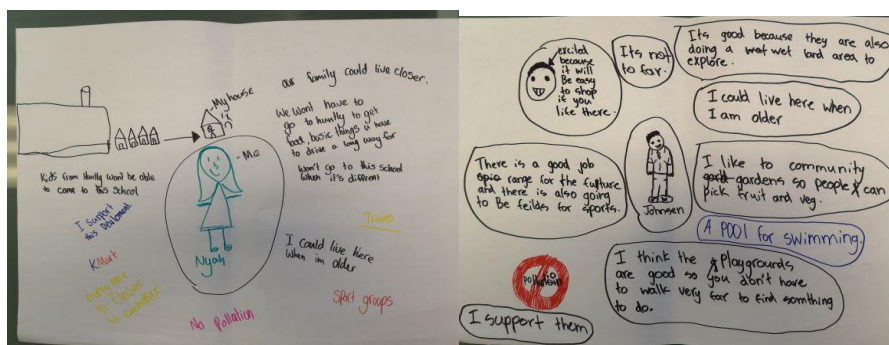 our family could live closer.
My house
We Wont have to
go to huntly to get
basic things u have
to drive a long way for
- Me
Won't go to this school
When it's diffrent
Kids from Huntly Won't be able
to come to this school
I support
this
KMart
Everyone
is closer
to eachother
Nyah
Trains
I could live here
when im older
Sport groups
No Pollation
excited
because
it will
Be easy
to shop
if you
live there.
Its not
to far.
Its good because they are also
doing a wet land area to
explore.
I could live here when
I am older
There is a good job
range for the fulture
and there is also going
to Be feilds for sports.
Johnsen
I like to community
gardens so people can
pick fruit and veg.
A POOl for swimming.
I think the Playgrounds
are good so you don't have
to walk very far to find somthing
to do.
I support them